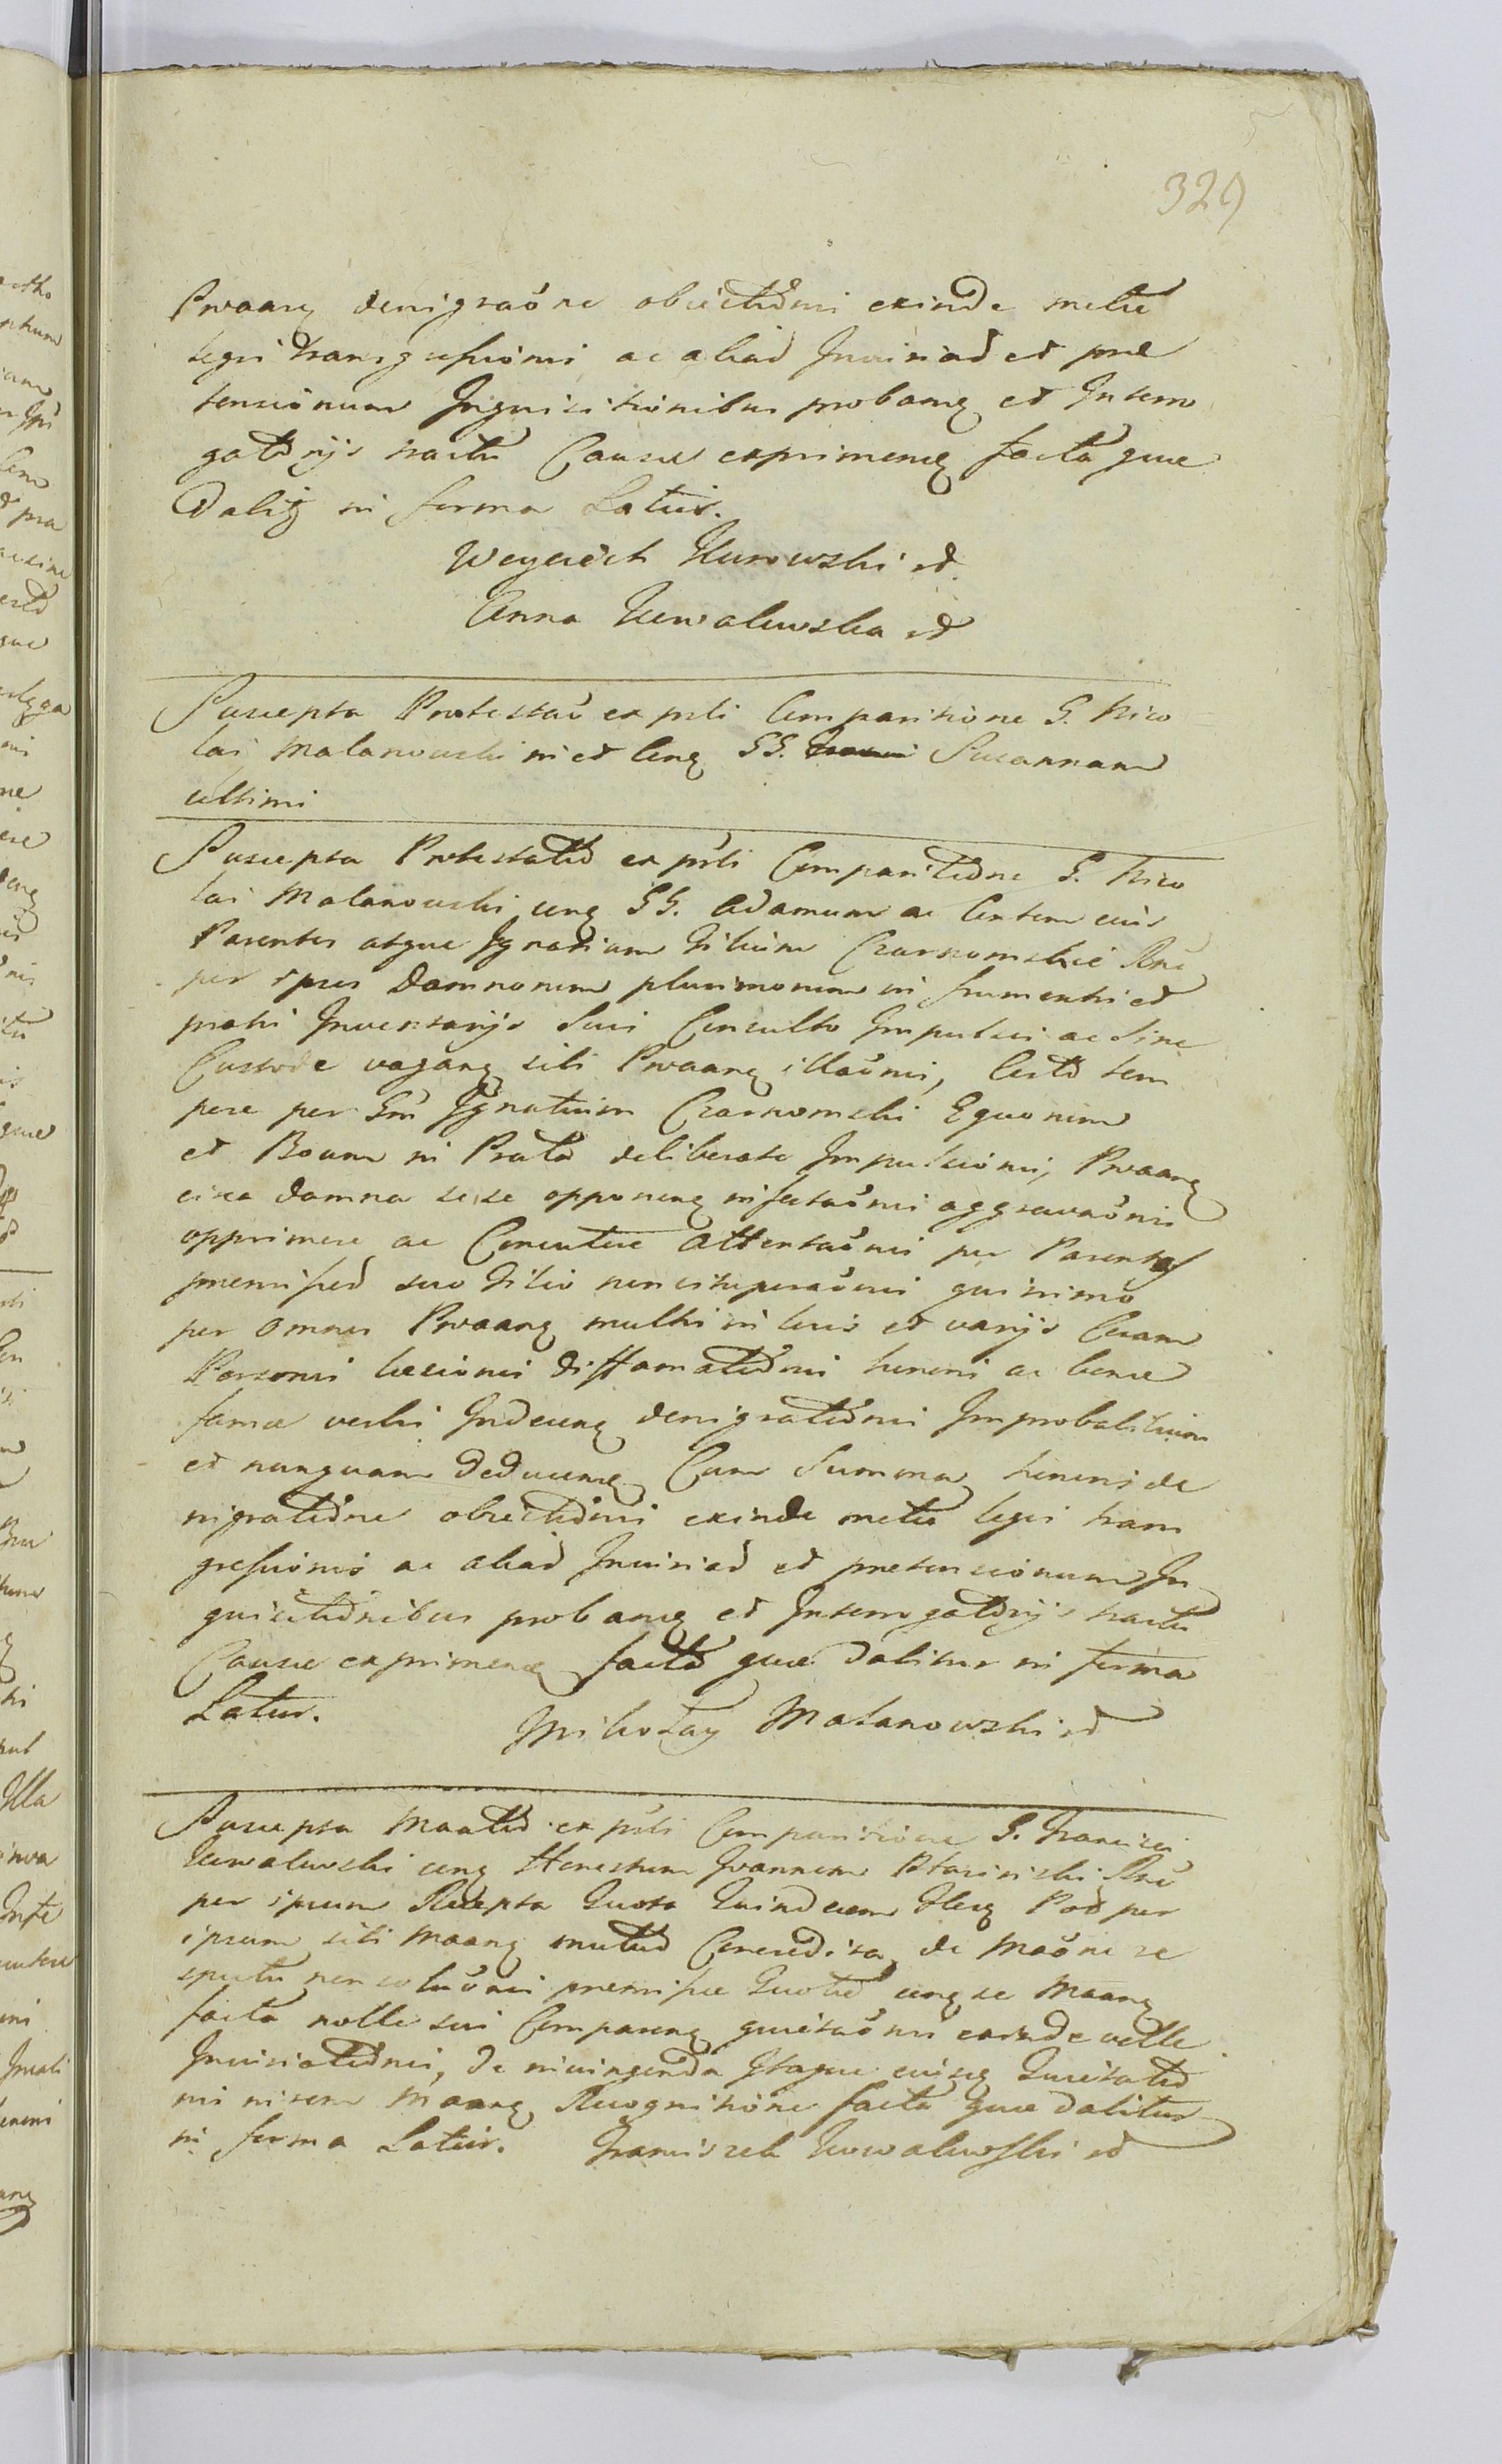 329
Prvaarq denigraõne obiectiõnis exinde metu
legis transgressionis ac aliad Iniuriad et præ
tensionum Inquisitionibus probarnq et Interro
gatorijs tractu Causæ exprimenq facta quæ
Dalitz in forma Latur.
Woyciech Kurowski
Anna Kowalewska
Suscepta Protestaõ ex psbli Comparitione G. Nico
lai Malanowski cnq GG. Susannam
ultimi
Suscepta Protestatio ex psbli Comparitione G. Nico
lai Malanowski cnq GG. Adamum ac Contem eius
Parentes atque Ignatium Filium Czarnomskie Rne
per ipsos Damnorum plurimorum in frumentis et
pratis Inventarijs Suis Consulto Impulsis ac Sine
Custode vagarnq sibi Prvaarq illaõnis, Certo tem
pore per Gm Ignatium Czarnomski Equorum
et Boum in Prata deliberate Impulsionis, Prvaarq
circa damna sese opponenq infestaõnis aggravaõnis
opprimere ac Concutere attentaõnis per Parentes
præmissed suo Filio non vituperaõnis quinimo
per omnes Prvaarq multis in locis et varijs Coram
Personis læsionis diffamatiõnis honoris ac bonæ
famæ verbis Indecenq denigratiõnis Improbabilium
et nunquam deducenq Cum Summa honoris de
nigratiõne obiectiõnis exinde metu legis trans
gressionis ac aliad Iniuriad et prætensionum In
quisitiõnibus probarnq et Interrogatorijs tractu
Causæ exprimenq facta quæ dabitur in forma
Latur. Mikołay Malanowski
Suscepta Maatio ex psbli Comparitione G. Francisci
Kowalewski cnq Honestum Joannem Rne
per ipsum Recepta Quota Quindecem flerq Pod per
ipsum sibi Maarnq mutuo Concredita de Maõne re
spectu non soluõnis præmissæ Quotæ cnq se Maarnq
facta nolle sui Comparenq quietaõnis exinde velle
Iniuriatiõnis, De iniungenda Itaque eiusq Quietatio
ni Maarnq Recognitione facta quæ dabitur
in forma Latur. Franciszek Kowalewski